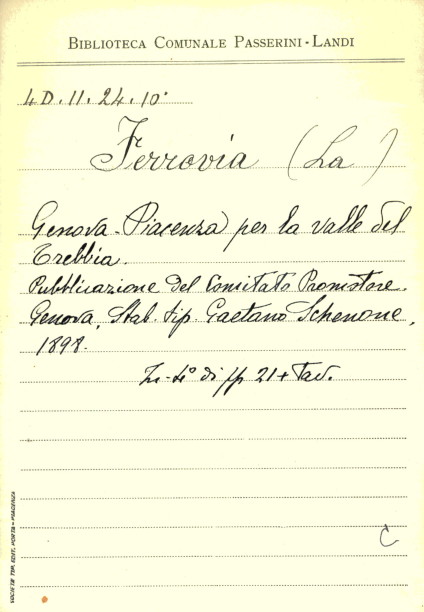 BIBLIOTECA COMUNALE PASSERINI-LANDI
4D.11.24.10°
Ferrovia (La)
Genova-Piacenza per la valle del
Trebbia.
Pubblicazione del Comitato Promotore.
Genova, Stab. tip. Gaetano Schenone,
1898.
In-4° di pp 21+Tav.
C
SOCIETÀ TIP. EDIT. PORTA-PIACENZA